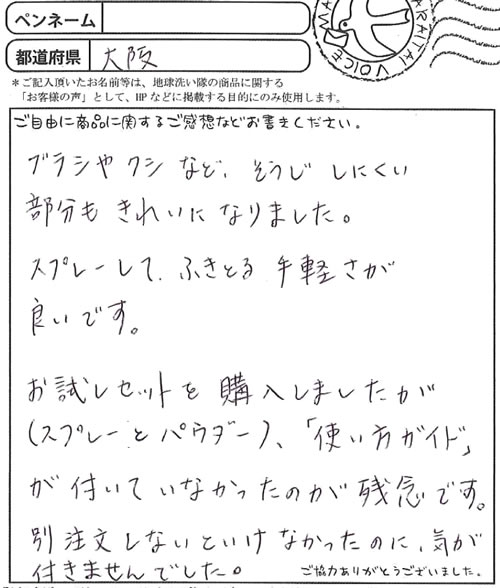 ペンネーム
都道府県 大阪
*ご記入頂いたお名前等は、地球洗い隊の商品に関する
「お客様の声」として、HPなどに掲載する目的にのみ使用します。
ご自由に商品に関するご感想などお書きください。
ブラシや クシ など、そうじ しにくい
部分も きれいに なりました。
スプレーして、ふきとる 手軽さが
良いです。
お試しセットを 購入しましたが
(スプレーと パウダー)、「使い方ガイド」
が 付いて いなかったのが 残念です。
別注文しないといけなかったのに、気が
付きませんでした。
ご協力ありがとうございました。
ARAITAI VOICE